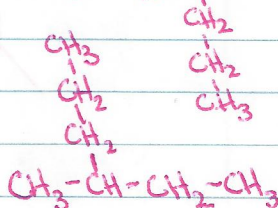 CH2
CH3 CH2
CH2 CH3
CH2
CH3-CH-CH2-CH3